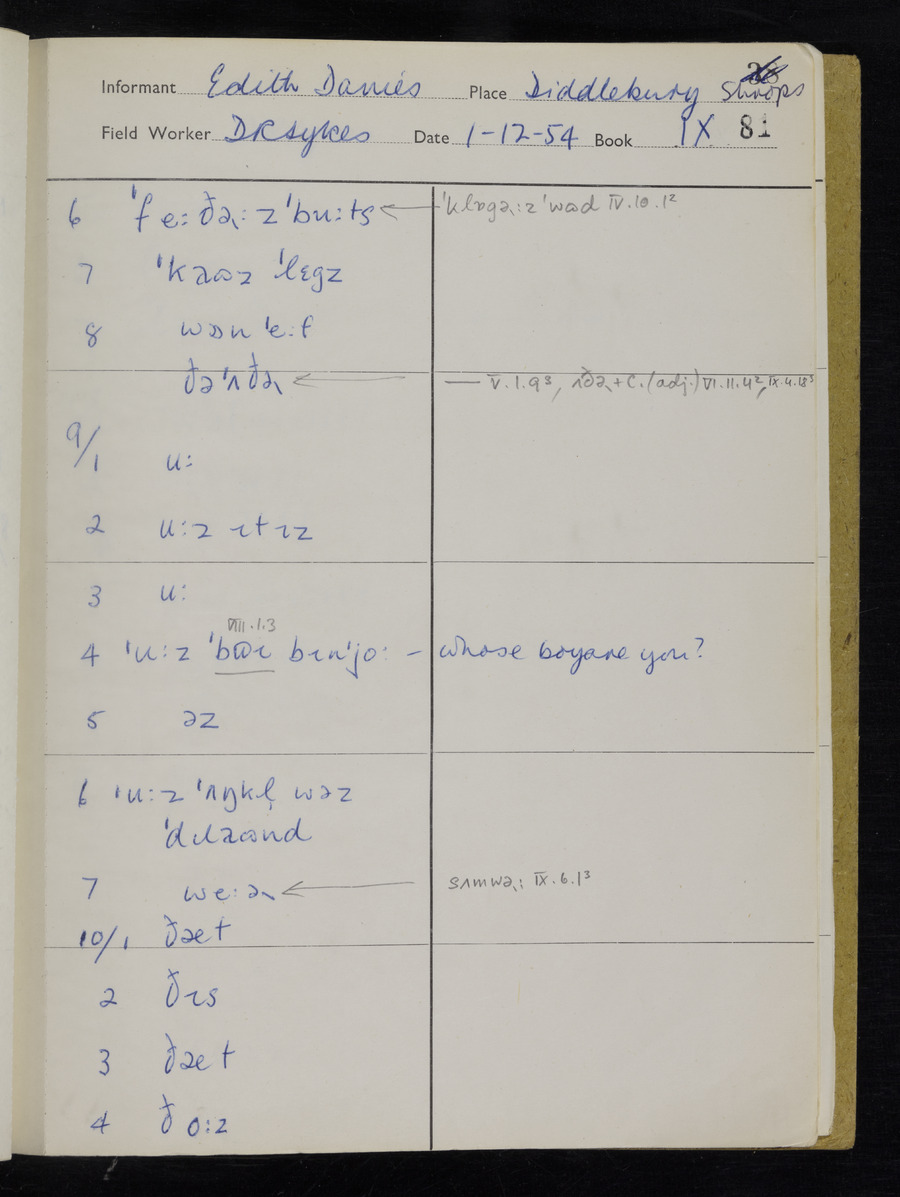 Informant Edith Davies Place Diddlebury Shrops
Field Worker DRSykes Date 1-12-54 Book IX 81
6 ˈfeːðɚːzˈbuːts ← ˈklɒgɚːzˈwɷd IV.10.1²
7 ˈkaɷz ˈlɛgz
8 wɒn ˈeːf
ðəˈʌðɚ ← — V.1.9³, ʌðɚ+C.(adj.) VI.11.4², IX.4.18³
9/1 uː
2 uːz ɪt ɪz
3 uː
VIII.1.3
4 ˈuːz ˈbɷɪ bɪnˈjoː – whose boy are you?
5 əz
6 ˈuːz ˈʌŋkl̩ wəz
ˈdɹaɷnd
7 weːɚ ← sʌmwɚː IX.6.1³
10/1 ðæt
2 ðɪs
3 ðæt
4 ðoːz